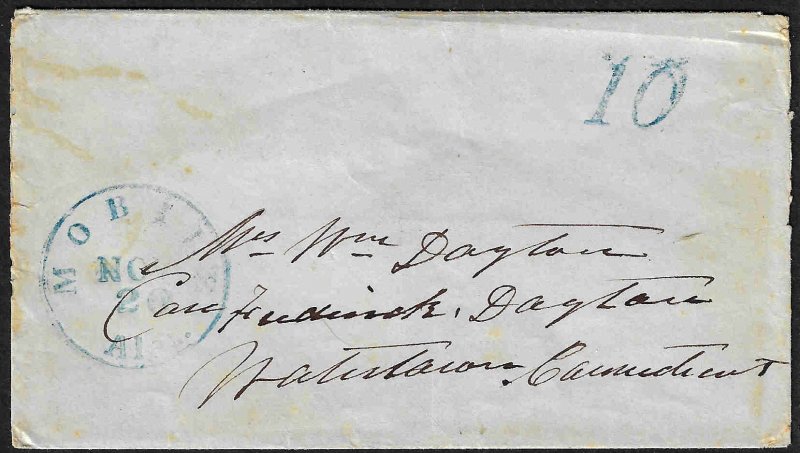 10
MOBILE
NOV
20
Ala.
Mrs Wm Dayton
Care Frederick Dayton
Watertown Connecticut